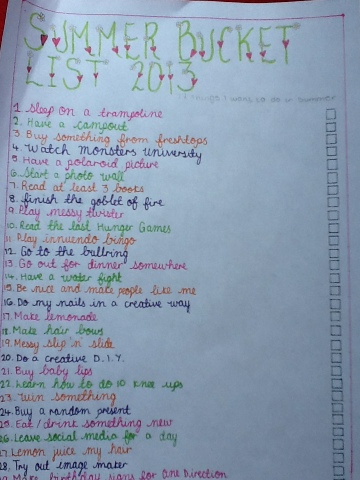 SUMMER BUCKET
LIST 2013
things I want to do in summer
1. Sleep on a trampoline
2. Have a campout
3. Buy something from freshtops
4. Watch Monsters University
5. Have a polaroid picture
6. Start a photo wall
7. Read at least 3 books
8. finish the goblet of fire
9. Play messy twister
10. Read the last Hunger Games
11. Play innuendo bingo
12. Go to the bullring
13. Go out for dinner somewhere
14. Have a water fight
15. Be nice and make people like me
16. Do my nails in a creative way
17. Make lemonade
18. Make hair bows
19. Messy slip 'n' slide
20. Do a creative D.I.Y.
21. Buy baby lips
22. Learn how to do 10 knee ups
23. Win something
24. Buy a random present
25. Eat/drink something new
26. Leave social media for a day
27. Lemon juice my hair
28. Try out image maker
29. Make birthday signs for One Direction